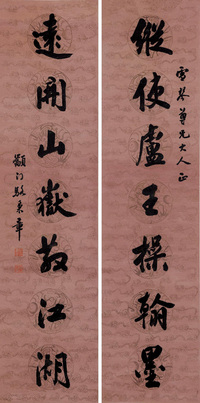 雪琴尊兄大人正
縱使盧王操翰墨
遠開山嶽散江湖
籲門駱秉章